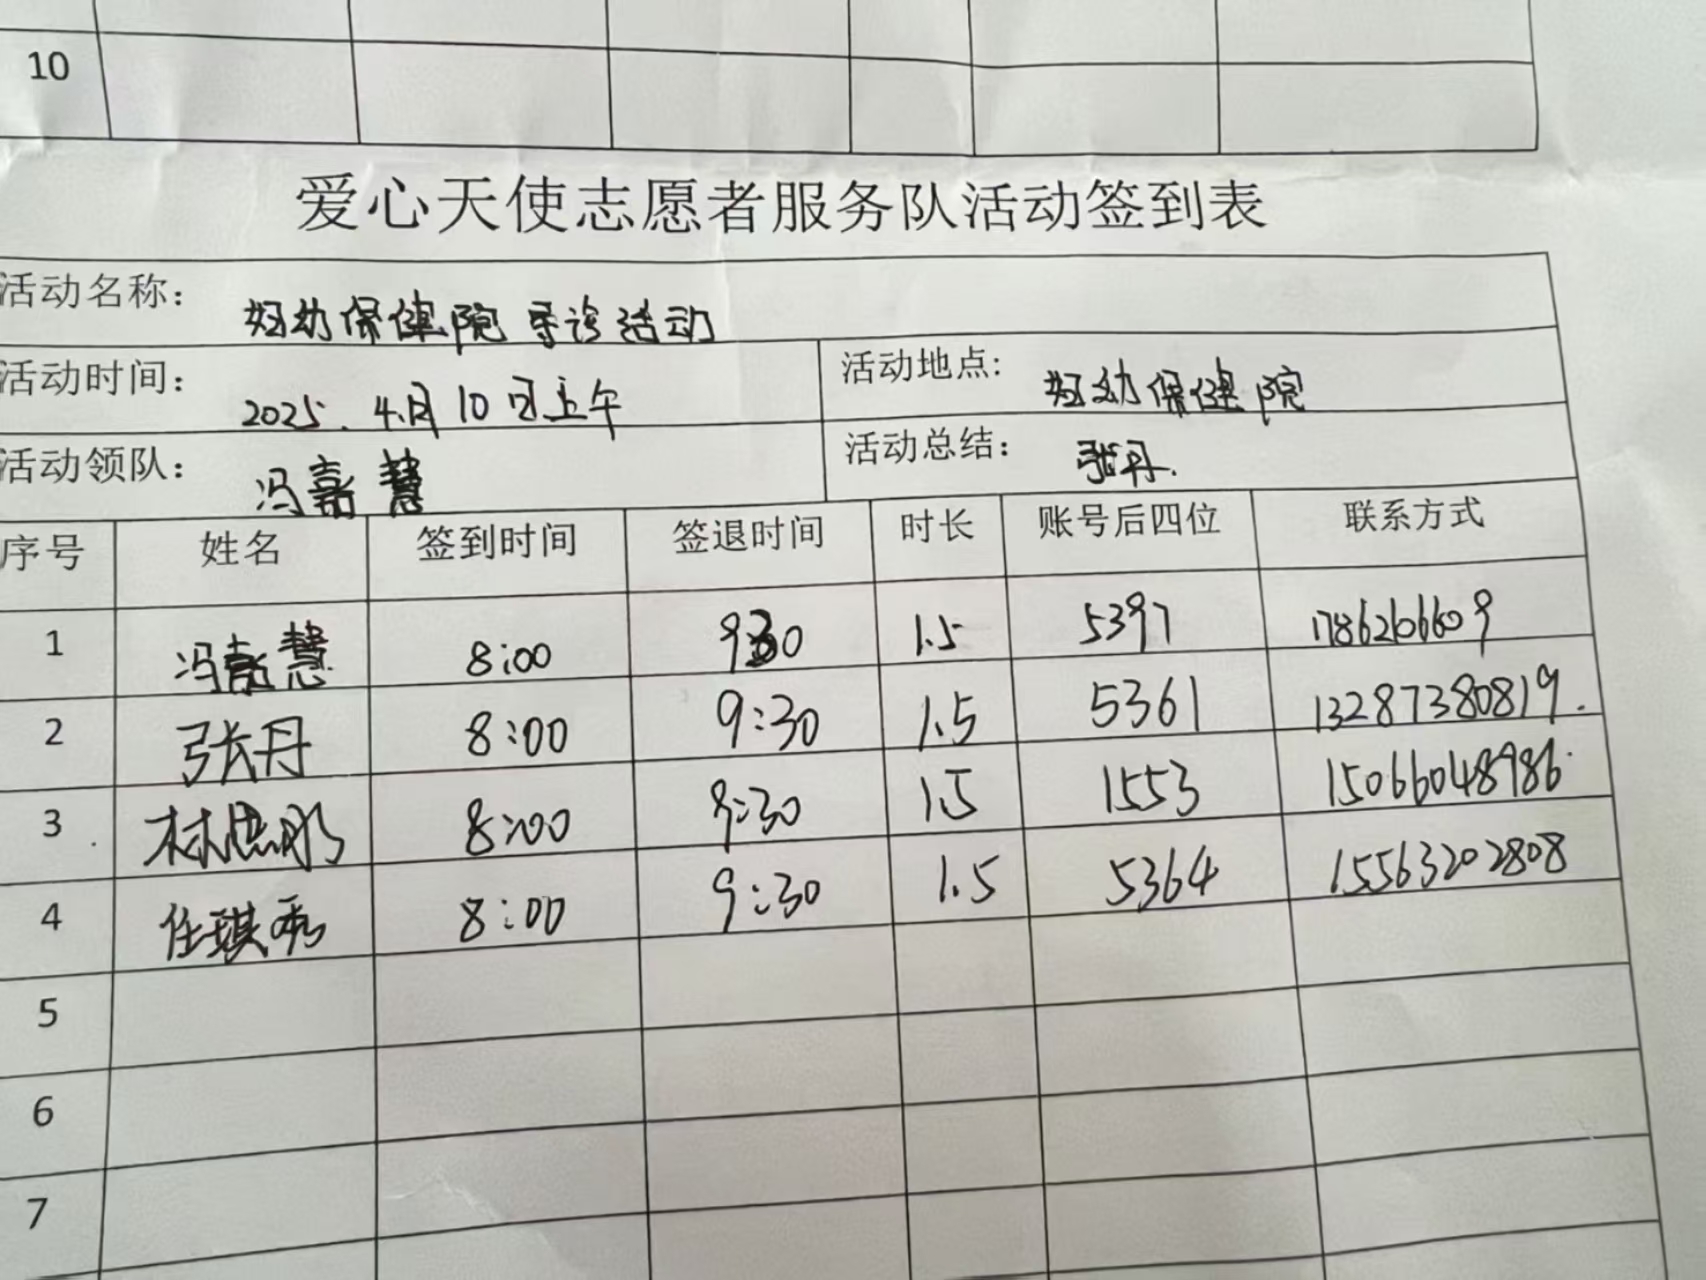 10
爱心天使志愿者服务队活动签到表
活动名称： 妇幼保健院导诊活动
活动时间： 2025. 4月10日上午 活动地点: 妇幼保健院
活动领队： 冯嘉慧 活动总结： 张丹.
序号 姓名 签到时间 签退时间 时长 账号后四位 联系方式
1 冯嘉慧 8:00 9:30 1.5 5397
2 张丹 8:00 9:30 1.5 5361 13287380819.
3 林思彤 8:00 9:30 1.5 1553 15066048986.
4 任琪 8:00 9:30 1.5 5364 15563202808
5
6
7